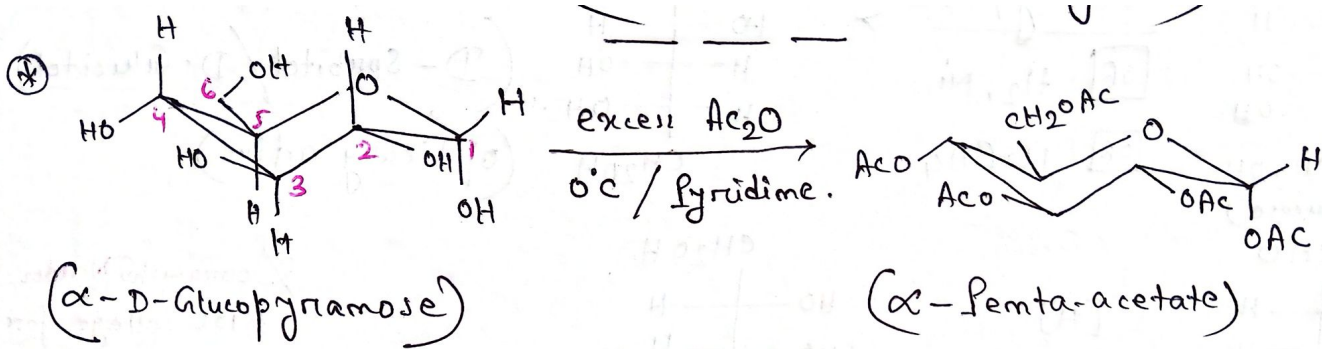 H H
* 6 OH O H
HO 4 5 2 1
HO 3 OH
H OH
H
(α-D-Glucopyranose)
excess Ac2O
0°C / Pyridine.
CH2OAC O H
ACO
ACO OAC
OAC
(α-Penta-acetate)